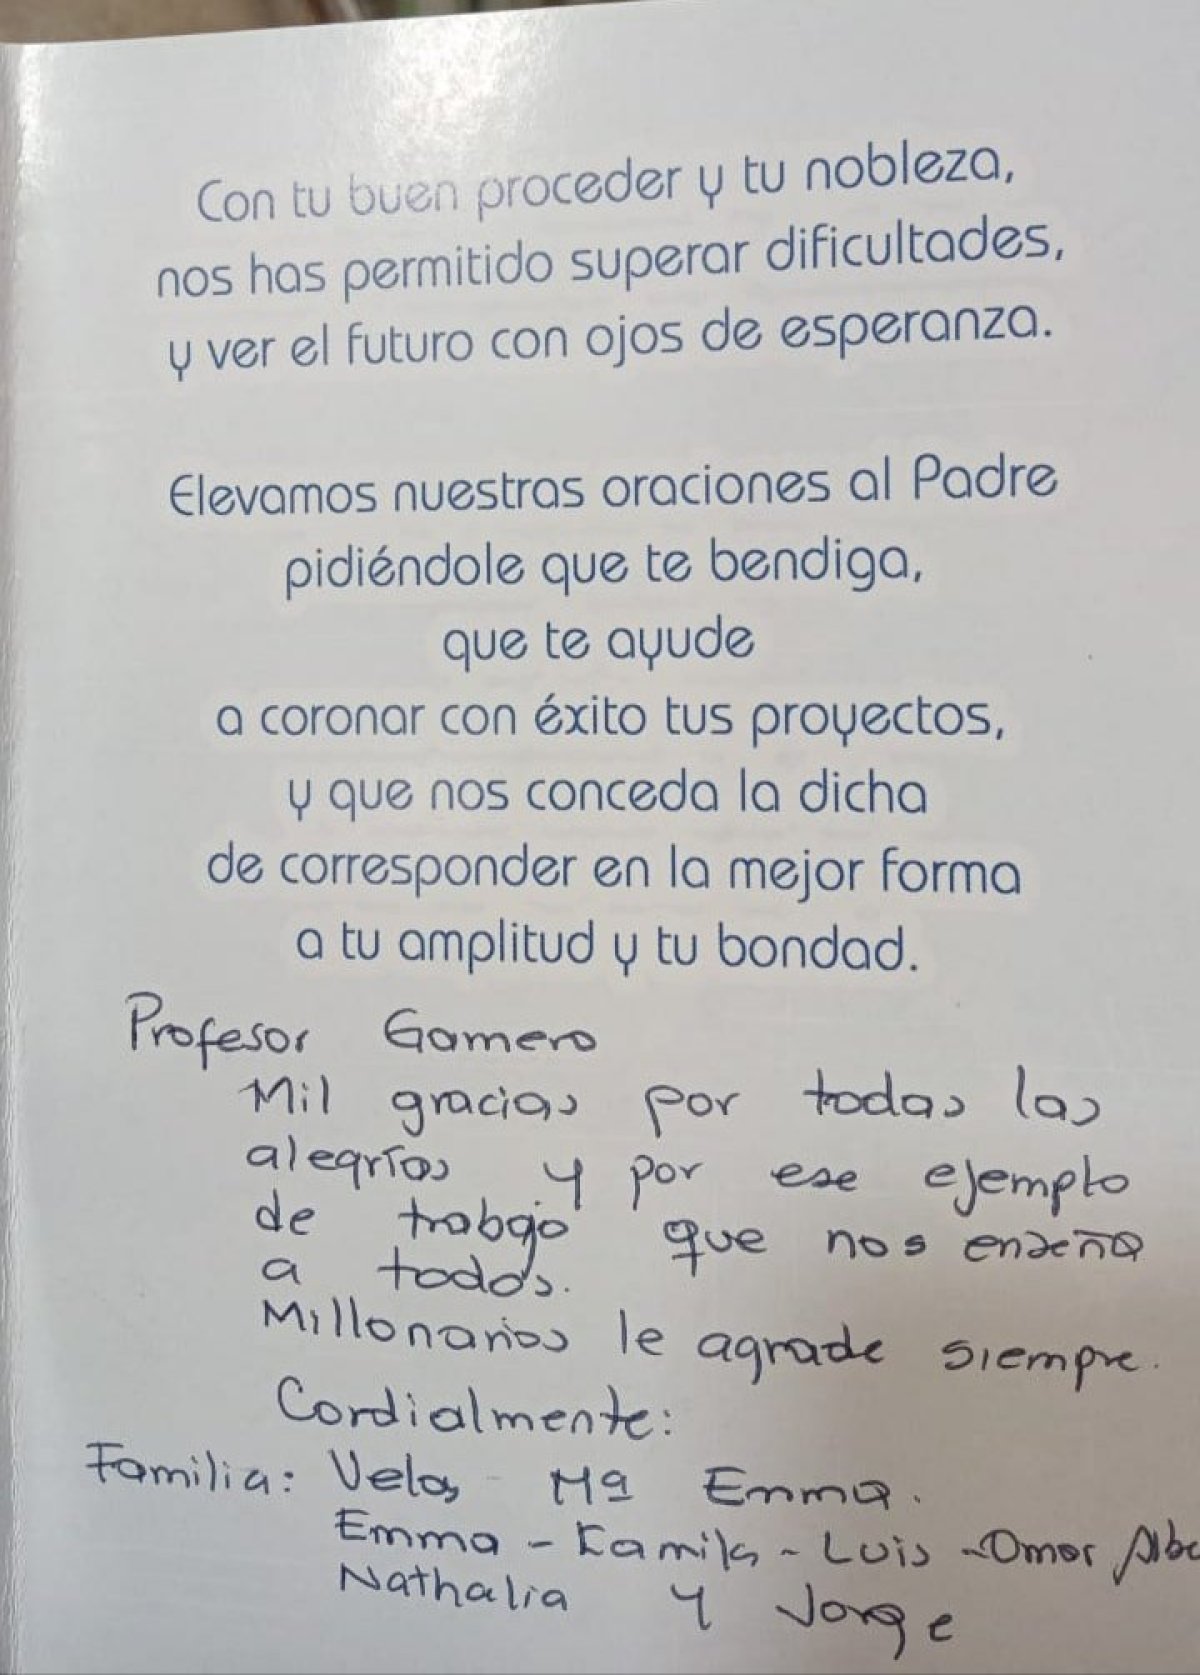 Con tu buen proceder y tu nobleza,
nos has permitido superar dificultades,
y ver el futuro con ojos de esperanza.
Elevamos nuestras oraciones al Padre
pidiéndole que te bendiga,
que te ayude
a coronar con éxito tus proyectos,
y que nos conceda la dicha
de corresponder en la mejor forma
a tu amplitud y tu bondad.
Profesor Gamero
Mil gracias por todas las
alegrías y por ese ejemplo
de trabajo que nos enseña
a todos.
Millonarios le agrade siempre.
Cordialmente:
Familia: Mª Emma.
Emma - Kamila - Luis - Omar
Nathalia y Jorge